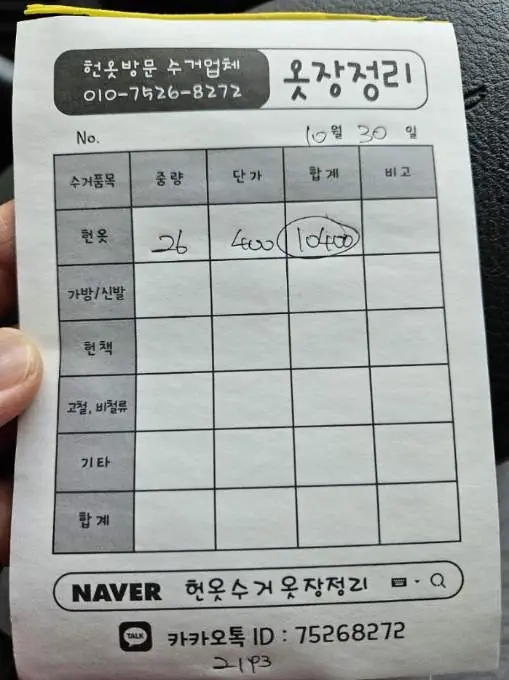 헌옷방문 수거업체
010-7526-8272
옷장정리
No. 10월 30일
수거품목 중량 단가 합계 비고
헌옷 26 400 10400
가방/신발
헌책
고철, 비철류
기타
합계
NAVER 헌옷수거 옷장정리
TALK 카카오톡 ID : 75268272
2193